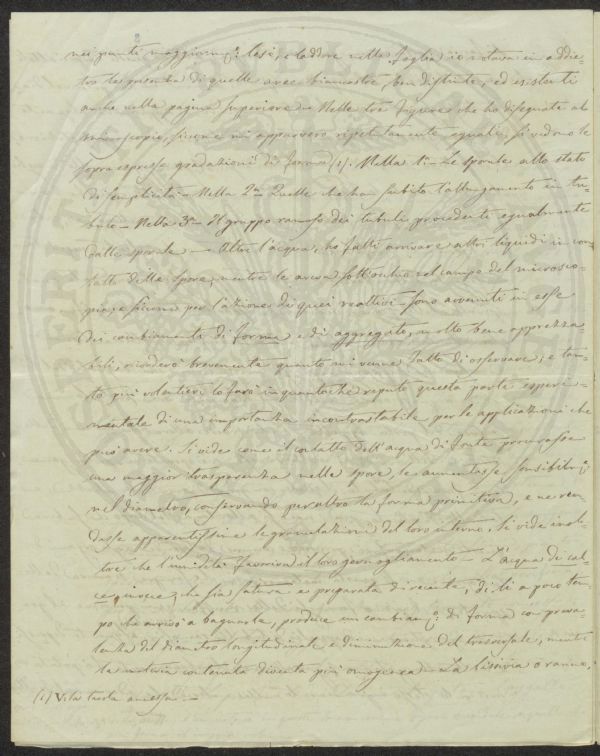 nei punti maggiorm.e lesi, e laddove nella foglia si notava in addie-
tro la presenza di quelle aree biancastre, ben distinte, ed esistenti
anche nella pagina superiore - Nelle tre figure che ho disegnate al
microscopio, siccome mi apparvero ripetutamente eguali, si vedono le
sopra espresse gradazioni di forma (1). Nella 1a - Le sporule allo stato
di semplicità - Nella 2a Quelle che han subito l'allungamento in tu-
bulo - Nella 3a - Il gruppo ramoso dei tubuli procedenti egualmente
dalle sporule - Oltre l'acqua, ho fatti arrivare altri liquidi in con-
tatto delle spore, mentre le aveva sott'occhio nel campo del microsco-
pio; e siccome per l'azione di quei reattivi sono avvenuti in esse
dei cambiamenti di forma e di aggregato, molto bene apprezza-
bili, ricorderò brevemente quanto mi venne fatto di osservare; e tan-
to più volentieri lo farò inquantoche reputo questa parte esperi-
mentale di una importanza incontrastabile per le applicazioni che
può avere. Si vide come il contatto dell'acqua di fonte procurasse
una maggior trasparenza nelle spore, le aumentasse sensibilm.e
nel diametro, conservando per altro la forma primitiva, e ne ren-
desse apparentissime le granulazioni del loro interno. Si vide inol-
tre che l'umidità favoriva il loro germogliamento - L'acqua di cal-
ce invece, che sia satura e preparata di recente, di lì a poco tem-
po che arrivò a bagnarle, produce un cambiam.o di forma con preva-
lenza del diametro longitudinale e diminuzione del trasversale, mentre
la materia contenuta diventa più omogenea - La lissivia o ranno,
(1) V. la tavola annessa. -